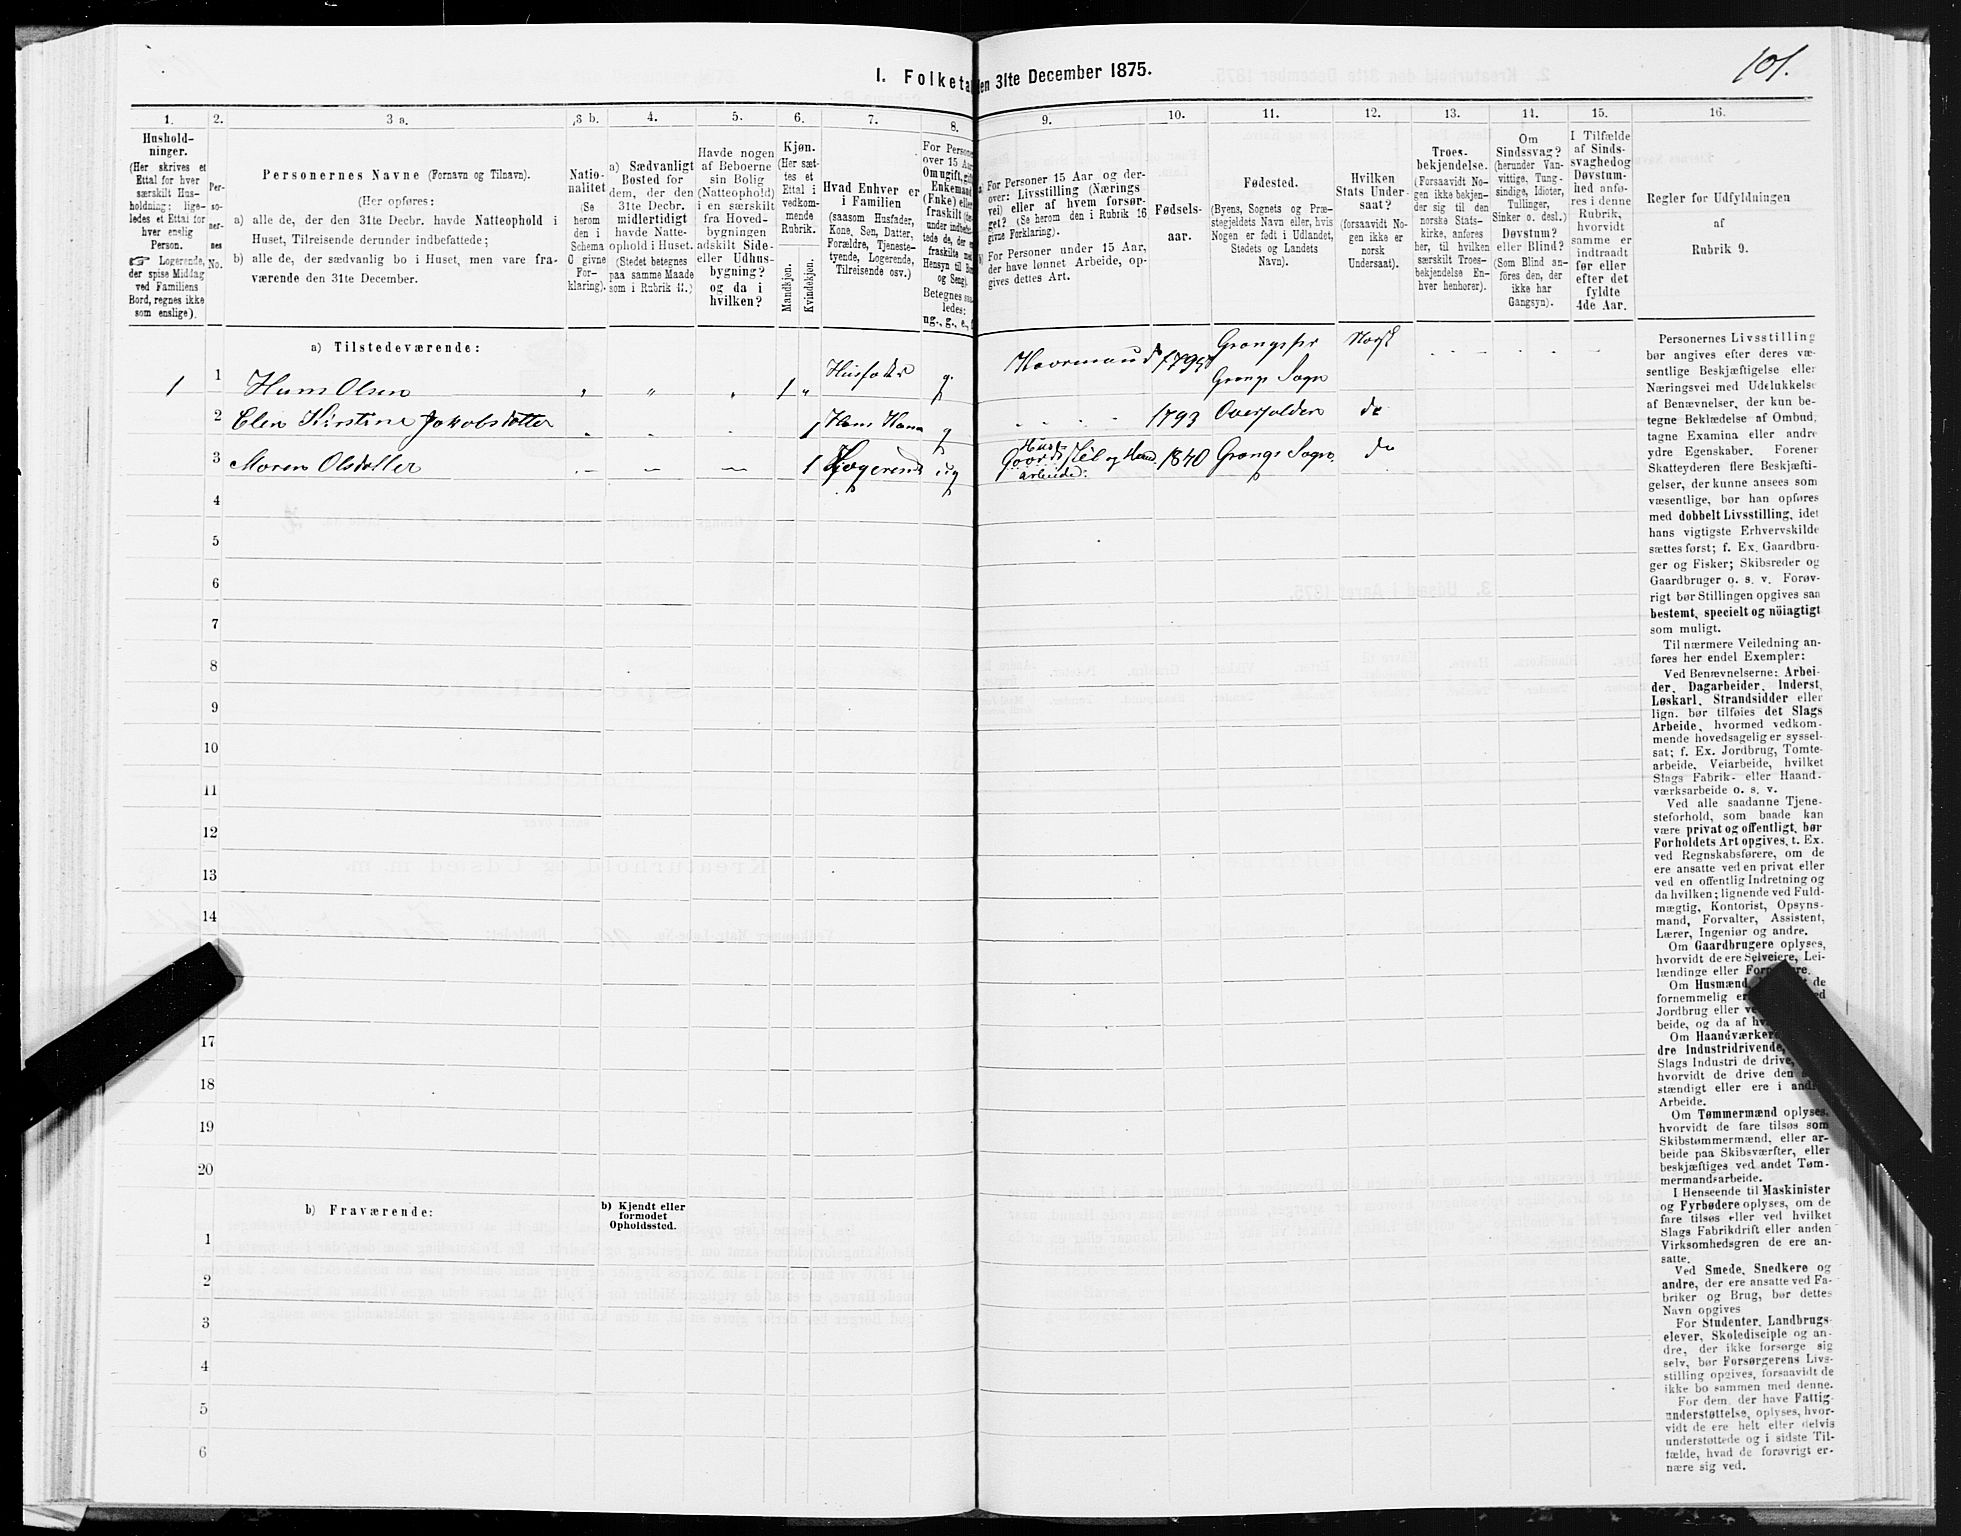 101.
I. Folketa den 31te December 1875.
1.
Hushold-
ninger.
(Her skrives et
Ettal for hver
særskilt Hus-
holdning; lige-
ledes et Ettal for
hver enslig
Person.
☞ Logerende,
der spise Middag
ved Familiens
Bord, regnes ikke
som enslige).
2.
Per-
so-
ner-
nes
No.
3 a.
Personernes Navne (Fornavn og Tilnavn).
(Her opføres:
a) alle de, der den 31te Decbr. havde Natteophold i
Huset, Tilreisende derunder indbefattede;
b) alle de, der sædvanlig bo i Huset, men vare fra-
værende den 31te December.
3 b.
Natio-
nalitet
(Se
herom
den i
Schema
O givne
For-
klaring).
4.
a) Sædvanligt
Bosted for
dem, der den
31te Decbr.
midlertidigt
havde Natte-
ophold i Huset.
(Stedet betegnes
paa samme Maade
som i Rubrik 11.)
5.
Havde nogen
af Beboerne
sin Bolig
(Natteophold)
i en særskilt
fra Hoved-
bygningen
adskilt Side-
eller Udhus-
bygning?
og da i
hvilken?
6.
Kjøn.
(Her sæt-
tes et
Ettal i
vedkom-
mende
Rubrik.
Mandkjøn.
Kvindekjøn.
7.
Hvad Enhver er
i Familien
(saasom Husfader,
Kone, Søn, Datter,
Forældre, Tjeneste-
tyende, Logerende,
Tilreisende osv.)
8.
For Persone
over 15 Aar
Om ugift, gift
Enkemand
(Enke) eller
fraskilt
Hensyn til Bo
og Seng).
Betegnes saa-
ledes:
ug., g., e., f
9.
a) For Personer 15 Aar og der-
over: Livsstilling (Nærings-
vei) eller af hvem forsør-
get? (Se herom den i Rubrik 16
givne Forklaring).
b) For Personer under 15 Aar,
der have lønnet Arbeide, op-
gives dettes Art.
10.
Fødsels-
aar.
11.
Fødested.
(Byens, Sognets og Præ-
stegjeldets Navn eller, hvis
Nogen er født i Udlandet,
Stedets og Landets
Navn).
12.
Hvilken
Stats Under-
saat?
(forsaavidt No-
gen ikke er
norsk
Undersaat).
13.
Troes-
bekjendelse.
(Forsaavidt No-
gen ikke bekjen-
der sig til den
norske Stats-
kirke, anføres
her, til hvilken
særskilt Troes-
bekjendelse En-
hver henhører).
14.
Om
Sindssvag?
(herunder Van-
vittige, Tung-
sindige, Idioter,
Tullinger,
Sinker o. desl.)
Døvstum?
eller Blind?
(Som Blind an-
føres den, der
ikke har
Gangsyn).
15.
I Tilfælde
af Sinds-
svaghedog
Døvstum-
hed anfø-
res i denne
Rubrik,
hvorvidt
samme er
indtraadt
før eller
efter det
fyldte
4de Aar.
16.
Regler for Udfyldningen
af
Rubrik 9.
a) Tilstedeværende:
1 1 Olsen " " " 1 " Husfader g. 1795 Grongs Sogn Norsk
2 Elen Kirstine Jakobsdotter 1 Hans Kona g 1793 Overhalden do
3 Maren Olsdotter 1 Logerende ug arbeide: 1840 Grongs Sogn do
4
5
6
7
8
9
10
11
12
13
14
17
18
19
20
b) Fraværende:
b) Kjendt eller
formodet
Opholdssted.
1
2
3
4
5
6
Personernes Livsstilling
bør angives efter deres væ-
sentlige Beskjæftigelse eller
Næringsvei med Udelukkelse
af Benævnelser, der kun be-
tegne Beklædelse af Ombud,
tagne Examina eller andre
ydre Egenskaber. Forener
Skatteyderen flere Beskjæfti-
gelser, der kunne ansees som
væsentlige, bør han opføres
med dobbelt Livsstilling, idet
hans vigtigste Erhvervskilde
sættes først; f. Ex. Gaardbru-
ger og Fisker; Skibsreder og
Gaardbruger o. s. v. Forøv-
rigt bør Stillingen opgives saa
bestemt, specielt og nöiagtigt
som muligt.
Til nærmere Veiledning an-
føres her endel Exempler:
Ved Benævnelserne: Arbei-
der, Dagarbeider, Inderst,
Løskarl, Strandsidder eller
lign. bør tilføies det Slags
Arbeide, hvormed vedkom-
mende hovedsagelig er syssel-
sat; f. Ex. Jordbrug, Tomte-
arbeide, Veiarbeide, hvilket
Slags Fabrik- eller Haand-
værksarbeide o. s. v.
Ved alle saadanne Tjene-
steforhold, som baade kan
være privat og offentligt, bør
Forholdets Art opgives, t. Ex.
ved Regnskabsførere, om de
ere ansatte ved en privat eller
ved en offentlig Indretning og
da hvilken; lignende ved Fuld-
mægtig, Kontorist, Opsyns-
mand, Forvalter, Assistent,
Lærer, Ingeniør og andre.
Om Gaardbrugere oplyses,
hvorvidt de ere Selveiere, Lei-
lændinge eller
Om Husmænd, de
fornemmelig
Jordbrug eller
beide, og da af
Om Haandværkere
dre Industridrivende,
Slags Industri de drive,
hvorvidt de drive den
stændigt eller ere i
Arbeide.
Om Tømmermænd oplyses,
hvorvidt de fare tilsøs som
Skibstømmermænd, eller ar-
beide paa Skibsværfter, eller
beskjæftiges ved andet Tøm-
mermandsarbeide.
I Henseende til Maskinister
og Fyrbødere oplyses, om de
fare tilsøs eller ved hvilket
Slags Fabrikdrift eller anden
Virksomhedsgren de ere an-
satte.
Ved Smede, Snedkere og
andre, der ere ansatte ved Fa-
briker og Brug, bør dettes
Navn opgives
For Studenter, Landbrugs-
elever, Skoledisciple og an-
dre, der ikke forsørge sig
selv, bør Forsørgerens Livs-
stilling opgives, forsaavidt de
ikke bo sammen med denne.
For dem, der have Fattig-
understøttelse, oplyses, hvor-
vidt de ere helt eller delvis
understøttede og i sidste Til-
fælde, hvad de forøvrigt er-
nære sig ved.